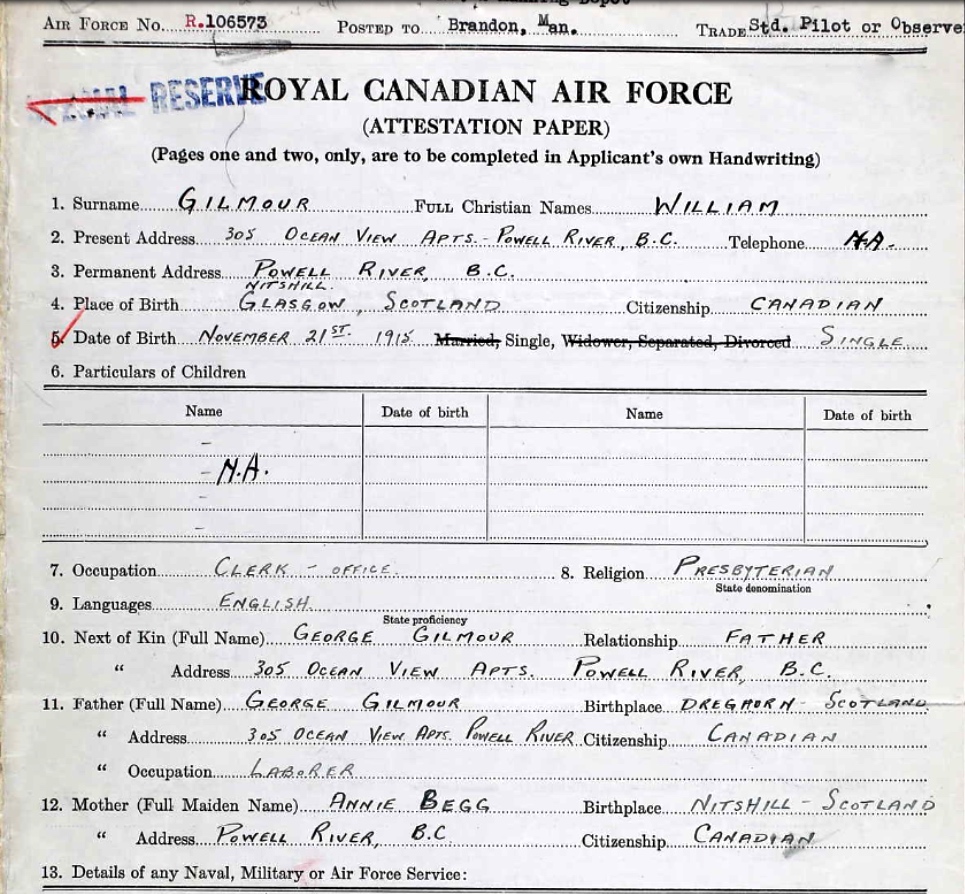 AIR FORCE No. R.106573 POSTED TO Brandon, Man. TRADE Std. Pilot or Observer
SPECIAL RESERVE
ROYAL CANADIAN AIR FORCE
(ATTESTATION PAPER)
(Pages one and two, only, are to be completed in Applicant's own Handwriting)
1. Surname GILMOUR FULL Christian Names WILLIAM
2. Present Address 305 OCEAN VIEW APTS. - POWELL RIVER, B.C. Telephone N.A.
3. Permanent Address POWELL RIVER, B.C.
NITSHILL.
4. Place of Birth GLASGOW, SCOTLAND Citizenship CANADIAN
5. Date of Birth NOVEMBER 21ST. 1915 Married, Single, Widower, Separated, Divorced SINGLE
6. Particulars of Children
Name Date of birth Name Date of birth
–
– N.A.
–
–
7. Occupation CLERK - OFFICE. 8. Religion PRESBYTERIAN
State denomination
9. Languages ENGLISH.
State proficiency
10. Next of Kin (Full Name) GEORGE GILMOUR Relationship FATHER
" Address 305 OCEAN VIEW APTS. POWELL RIVER, B.C.
11. Father (Full Name) GEORGE GILMOUR Birthplace DREGHORN - SCOTLAND
" Address 305 OCEAN VIEW APTS. POWELL RIVER Citizenship CANADIAN
" Occupation LABORER
12. Mother (Full Maiden Name) ANNIE BEGG Birthplace NITSHILL - SCOTLAND
" Address POWELL RIVER, B.C Citizenship CANADIAN
13. Details of any Naval, Military or Air Force Service: